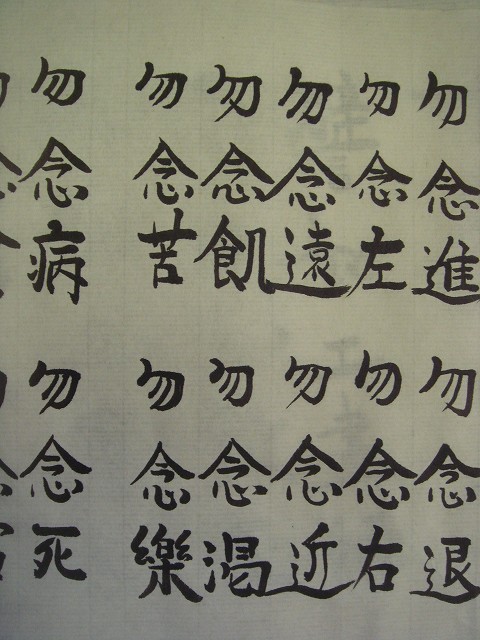 勿念進勿念退
勿念左勿念右
勿念遠勿念近
勿念飢勿念渇
勿念苦勿念樂
勿念病勿念死